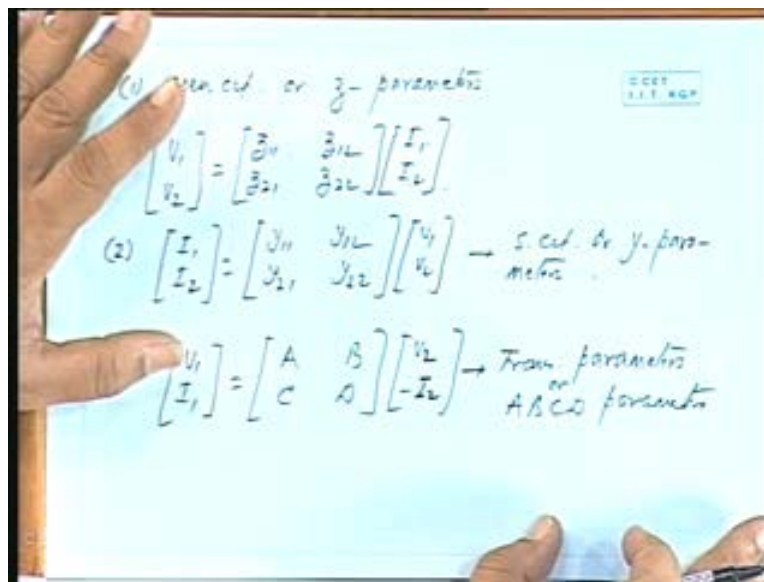 (1) open cct. or z- parameters
C CET
I.I.T. KGP
[V1 V2] = [z11 z12 z21 z22] [I1 I2]
(2) [I1 I2] = [y11 y12 y21 y22] [V1 V2] → s.cct. or y-para-
meters
[V1 I1] = [A B C D] [V2 -I2] → Trans. parameters
or
ABCD parameters